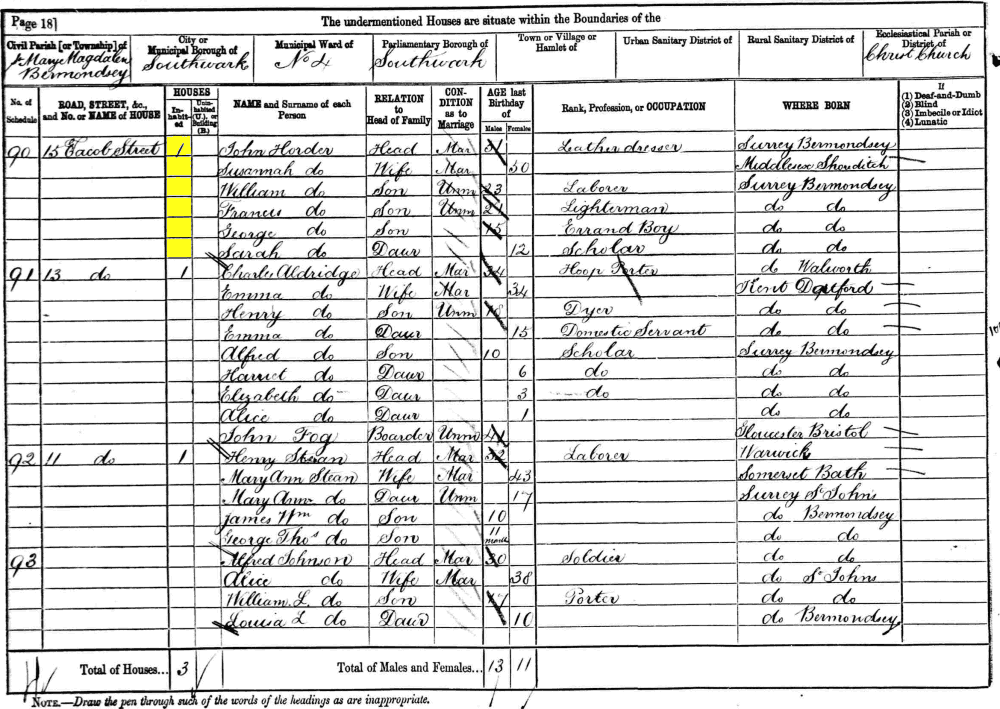 Page 18]
The undermentioned Houses are situate within the Boundaries of the
Civil Parish [or Township] of
St Mary Magdalen
Bermondsey
City or
Municipal Borough of
Southwark
Municipal Ward of
No 4
Parliamentary Borough of
Southwark
Town or Village or
Hamlet of
Urban Sanitary District of
Rural Sanitary District of
Ecclesiastical Parish or
District of
Christ Church
No. of Schedule
ROAD, STREET, &c., and No. or NAME of HOUSE
HOUSES
Inhabited
Uninhabited (U.), or Building (B.)
NAME and Surname of each Person
RELATION to Head of Family
CONDITION as to Marriage
AGE last Birthday of
Males Females
Rank, Profession, or OCCUPATION
WHERE BORN
If
(1) Deaf-and-Dumb
(2) Blind
(3) Imbecile or Idiot
(4) Lunatic
90 15 Jacob Street 1 John Horder Head Mar 51 Leather dresser Surrey Bermondsey
Susannah do Wife Mar 50 Middlesex Shoreditch
William do Son Unm 23 Laborer Surrey Bermondsey
Francis do Son Unm 21 Lighterman do do
George do Son 15 Errand Boy do do
Sarah do Daur 12 Scholar do do
91 13 do 1 Charles Aldridge Head Mar 34 Hoop Porter do Walworth
Emma do Wife Mar 34 Kent Dartford
Henry do Son Unm 18 Dyer do do
Emma do Daur 15 Domestic Servant do do
Alfred do Son 10 Scholar Surrey Bermondsey
Harriet do Daur 6 do do do
Elizabeth do Daur 3 do do do
Alice do Daur 1 do do
John Fog Boarder Unm 41 Gloucester Bristol
92 11 do 1 Henry Stean Head Mar 32 Laborer Warwick
Mary Ann Stean Wife Mar 43 Somerset Bath
Mary Ann do Daur Unm 17 Surrey St Johns
James Wm do Son 10 do Bermondsey
George Thos do Son 11 months do do
93 Alfred Johnson Head Mar 30 Soldier do do
Alice do Wife Mar 38 do St Johns
William L do Son 17 Porter do do
Louisa L do Daur 10 do Bermondsey
Total of Houses... 3 Total of Males and Females... 13 11
NOTE.—Draw the pen through such of the words of the headings as are inappropriate.